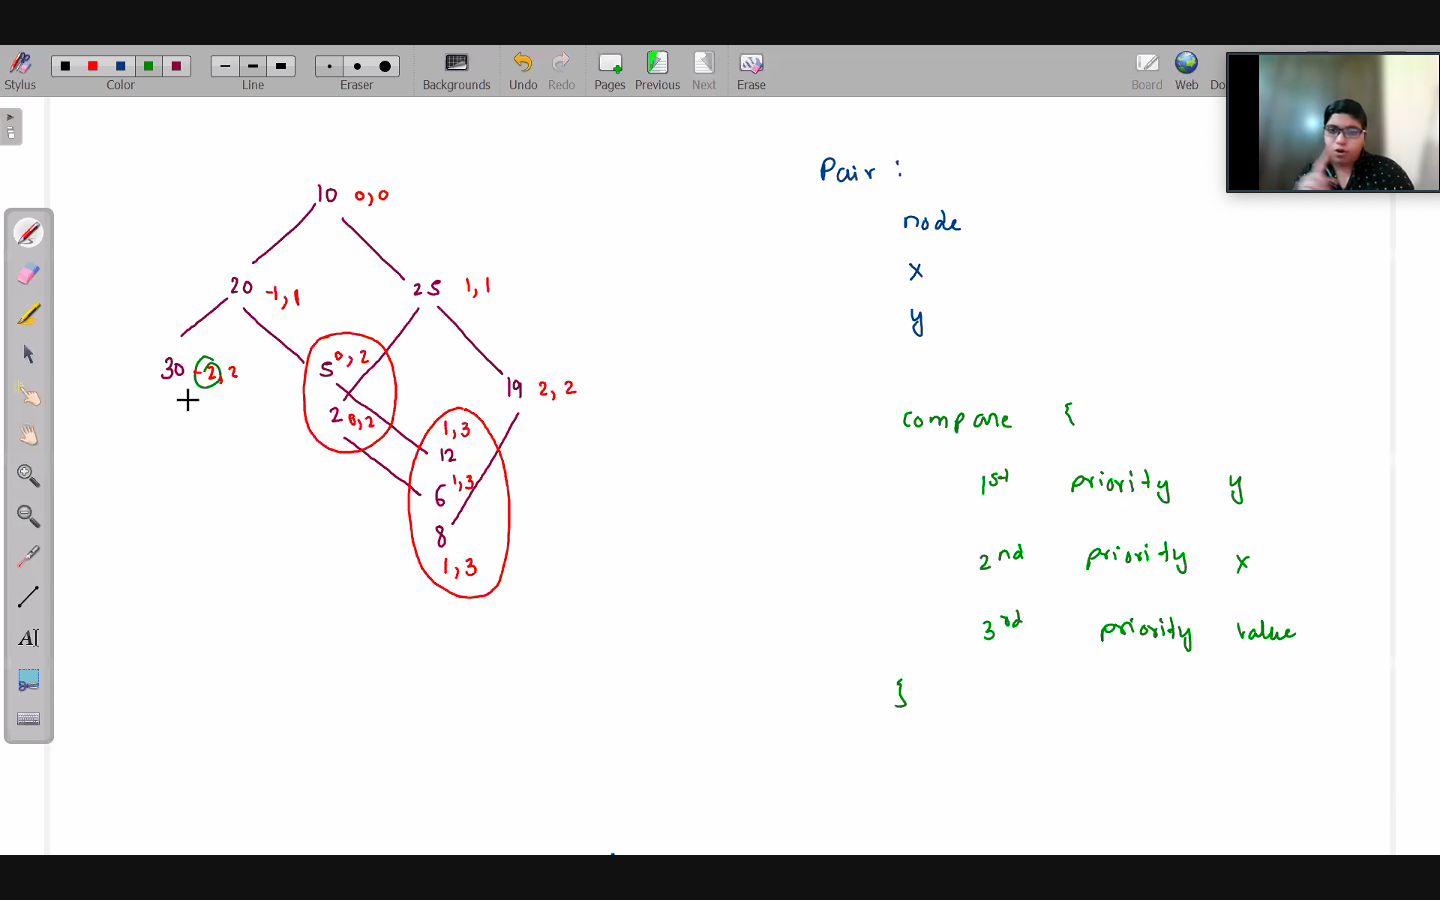 Stylus
Color
Line
Eraser
Backgrounds
Undo
Redo
Pages
Previous
Next
Erase
Board
Web
Do
10 0,0
20 -1,1
25 1,1
30 -2,2
5 0,2
2 0,2
19 2,2
1,3
12
6 1,3
8
1,3
Pair :
node
x
y
compare {
1st priority y
2nd priority x
3rd priority value
}
AI